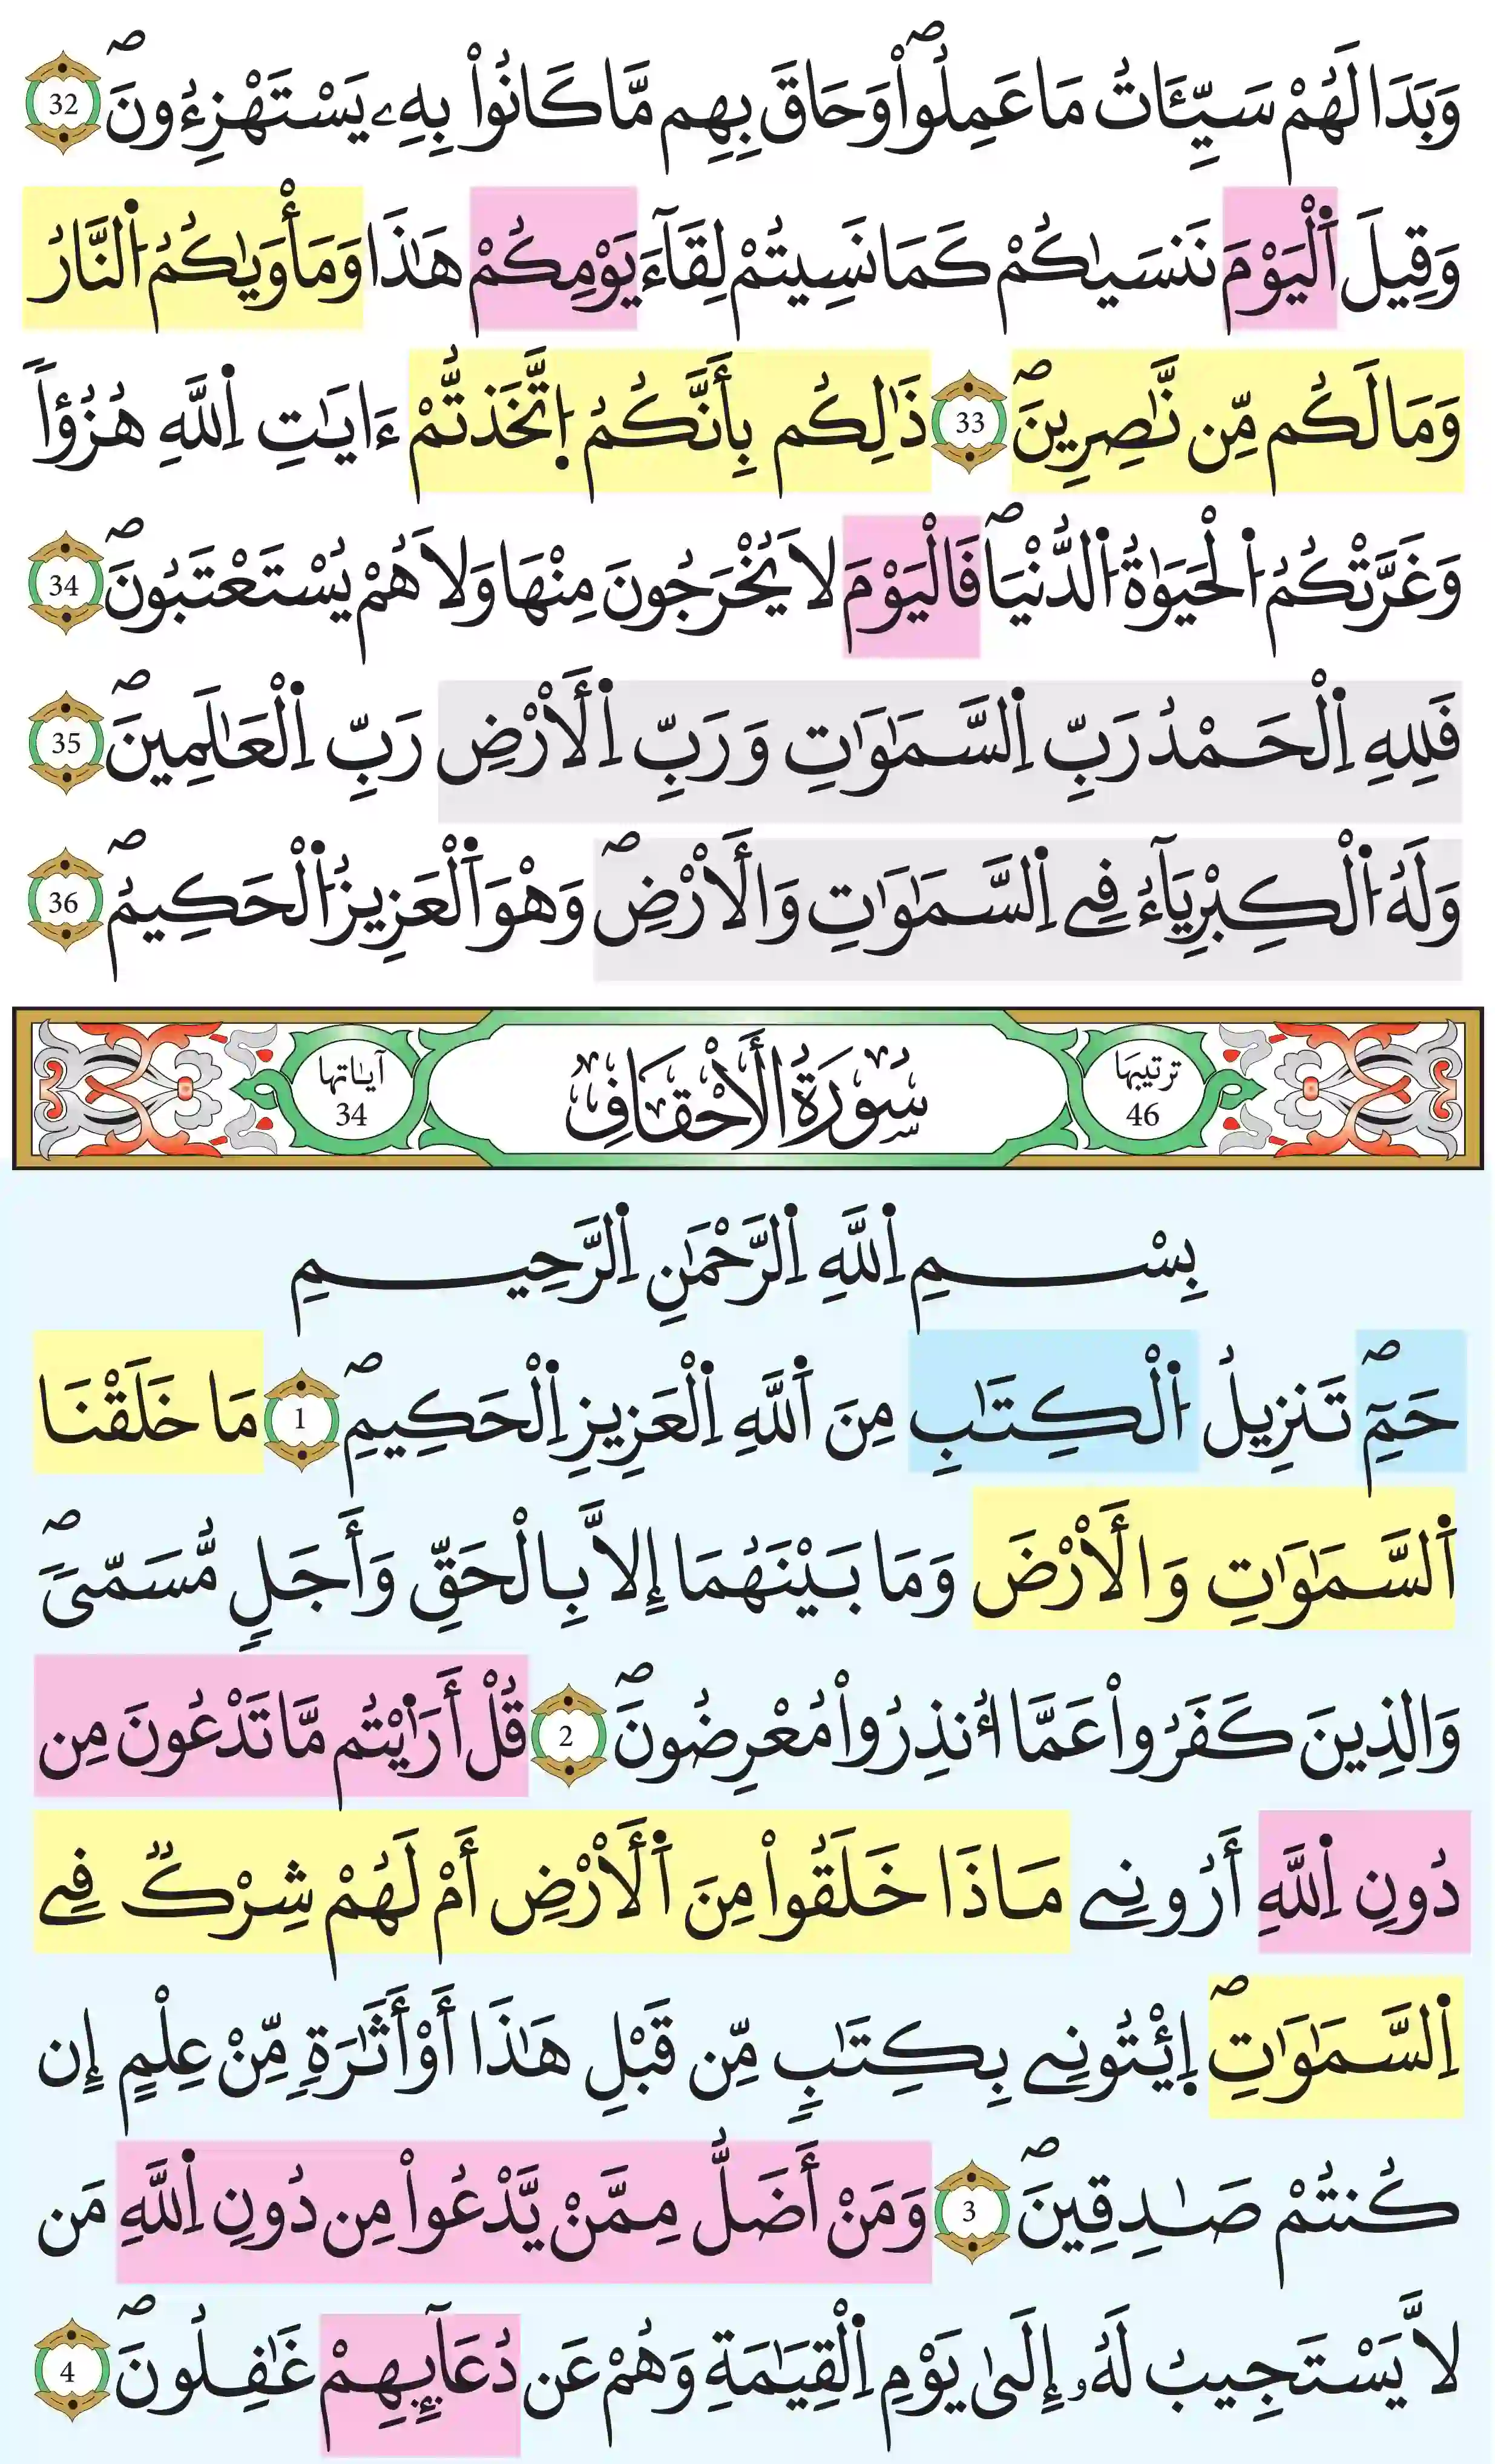 وَبَدَا لَهُمْ سَيِّـَٔاتُ مَا عَمِلُواْۖ وَحَاقَ بِهِم مَّا كَانُواْ بِهِۦ يَسْتَهْزِءُونَۖ 32
وَقِيلَ اَ۬لْيَوْمَ نَنسَيٰكُمْ كَمَا نَسِيتُمْ لِقَآءَ يَوْمِكُمْ هَٰذَا وَمَأْوَيٰكُمُ اُ۬لنَّارُ
وَمَا لَكُم مِّن نَّٰصِرِينَۖ 33 ذَٰلِكُم بِأَنَّكُمُ اُ۪تَّخَذتُّمْ ءَايَٰتِ اِ۬للَّهِ هُزُؤاٗ
وَغَرَّتْكُمُ اُ۬لْحَيَوٰةُ اُ۬لدُّنْي۪اۖ فَالْيَوْمَ لَا يُخْرَجُونَ مِنْهَا وَلَا هُمْ يُسْتَعْتَبُونَۖ 34
فَلِلهِ اِ۬لْحَمْدُ رَبِّ اِ۬لسَّمَٰوَٰتِ وَرَبِّ اِ۬لَارْضِ رَبِّ اِ۬لْعَٰلَمِينَۖ 35
وَلَهُ اُ۬لْكِبْرِيَآءُ فِے اِ۬لسَّمَٰوَٰتِ وَالَارْضِۖ وَهْوَ اَ۬لْعَزِيزُ اُ۬لْحَكِيمُۖ 36
ترتيبها 46 سُورَةُ الَاحْقَافِ آياتها 34
بِسْمِ اِ۬للَّهِ اِ۬لرَّحْمَٰنِ اِ۬لرَّحِيمِ
حَمِٓۖ تَنزِيلُ اُ۬لْكِتَٰبِ مِنَ اَ۬للَّهِ اِ۬لْعَزِيزِ اِ۬لْحَكِيمِۖ 1 مَا خَلَقْنَا
اَ۬لسَّمَٰوَٰتِ وَالَارْضَ وَمَا بَيْنَهُمَا إِلَّا بِالْحَقِّ وَأَجَلٖ مُّسَمّيٗۖ
وَالذِينَ كَفَرُواْ عَمَّا أُنذِرُواْ مُعْرِضُونَۖ 2 قُلْ أَرَٰيْتُم مَّا تَدْعُونَ مِن
دُونِ اِ۬للَّهِ أَرُونِے مَاذَا خَلَقُواْ مِنَ اَ۬لَارْضِ أَمْ لَهُمْ شِرْكٞ فِے
اِ۬لسَّمَٰوَٰتِۖ اِ۪يْتُونِے بِكِتَٰبٖ مِّن قَبْلِ هَٰذَا أَوْ أَثَٰرَةٖ مِّنْ عِلْمٍ إِن
كُنتُمْ صَٰدِقِينَۖ 3 وَمَنْ أَضَلُّ مِمَّنْ يَّدْعُواْ مِن دُونِ اِ۬للَّهِ مَن
لَّا يَسْتَجِيبُ لَهُۥ إِلَىٰ يَوْمِ اِ۬لْقِيَٰمَةِ وَهُمْ عَن دُعَآئِهِمْ غَٰفِلُونَۖ 4